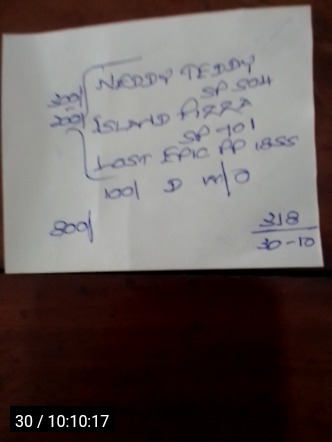 300/ NERDY TEDDY
SP 504
200/ ISLAND PIZZA
SP 701
LOST EPIC PP 1855
100/ D M/O
800/
318
30-10
30 / 10:10:17